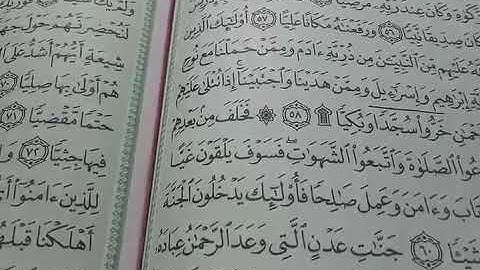 وَكَانَ عِندَ رَبِّهِۦ مَرْضِيًّا
صِدِّيقًا نَّبِيًّا ٥٦ وَرَفَعْنَٰهُ مَكَانًا عَلِيًّا ٥٧ أُو۟لَٰٓئِكَ ٱلَّذِينَ
عَلَيْهِم مِّنَ ٱلنَّبِيِّـۧنَ مِن ذُرِّيَّةِ ءَادَمَ وَمِمَّنْ حَمَلْنَا مَعَ نُوحٍ
إِبْرَٰهِيمَ وَإِسْرَٰٓءِيلَ وَمِمَّنْ هَدَيْنَا وَٱجْتَبَيْنَآ ۚ إِذَا تُتْلَىٰ عَلَيْهِمْ
خَرُّوا۟ سُجَّدًا وَبُكِيًّا ۩ ٥٨ ۞ فَخَلَفَ مِنۢ بَعْدِهِمْ
ٱلصَّلَوٰةَ وَٱتَّبَعُوا۟ ٱلشَّهَوَٰتِ ۖ فَسَوْفَ يَلْقَوْنَ غَيًّا
تَابَ وَءَامَنَ وَعَمِلَ صَٰلِحًا فَأُو۟لَٰٓئِكَ يَدْخُلُونَ ٱلْجَنَّةَ
شَيْـًٔا ٦٠ جَنَّٰتِ عَدْنٍ ٱلَّتِى وَعَدَ ٱلرَّحْمَٰنُ عِبَادَهُۥ
لَنُحْضِرَنَّهُمْ حَوْلَ
شِيعَةٍ أَيُّهُمْ أَشَدُّ
هُمْ أَوْلَىٰ بِهَا صِلِيًّا ٧٠
حَتْمًا مَّقْضِيًّا ٧١
فِيهَا جِثِيًّا ٧٢
لِلَّذِينَ ءَامَنُوٓا۟
أَهْلَكْنَا قَبْلَهُم